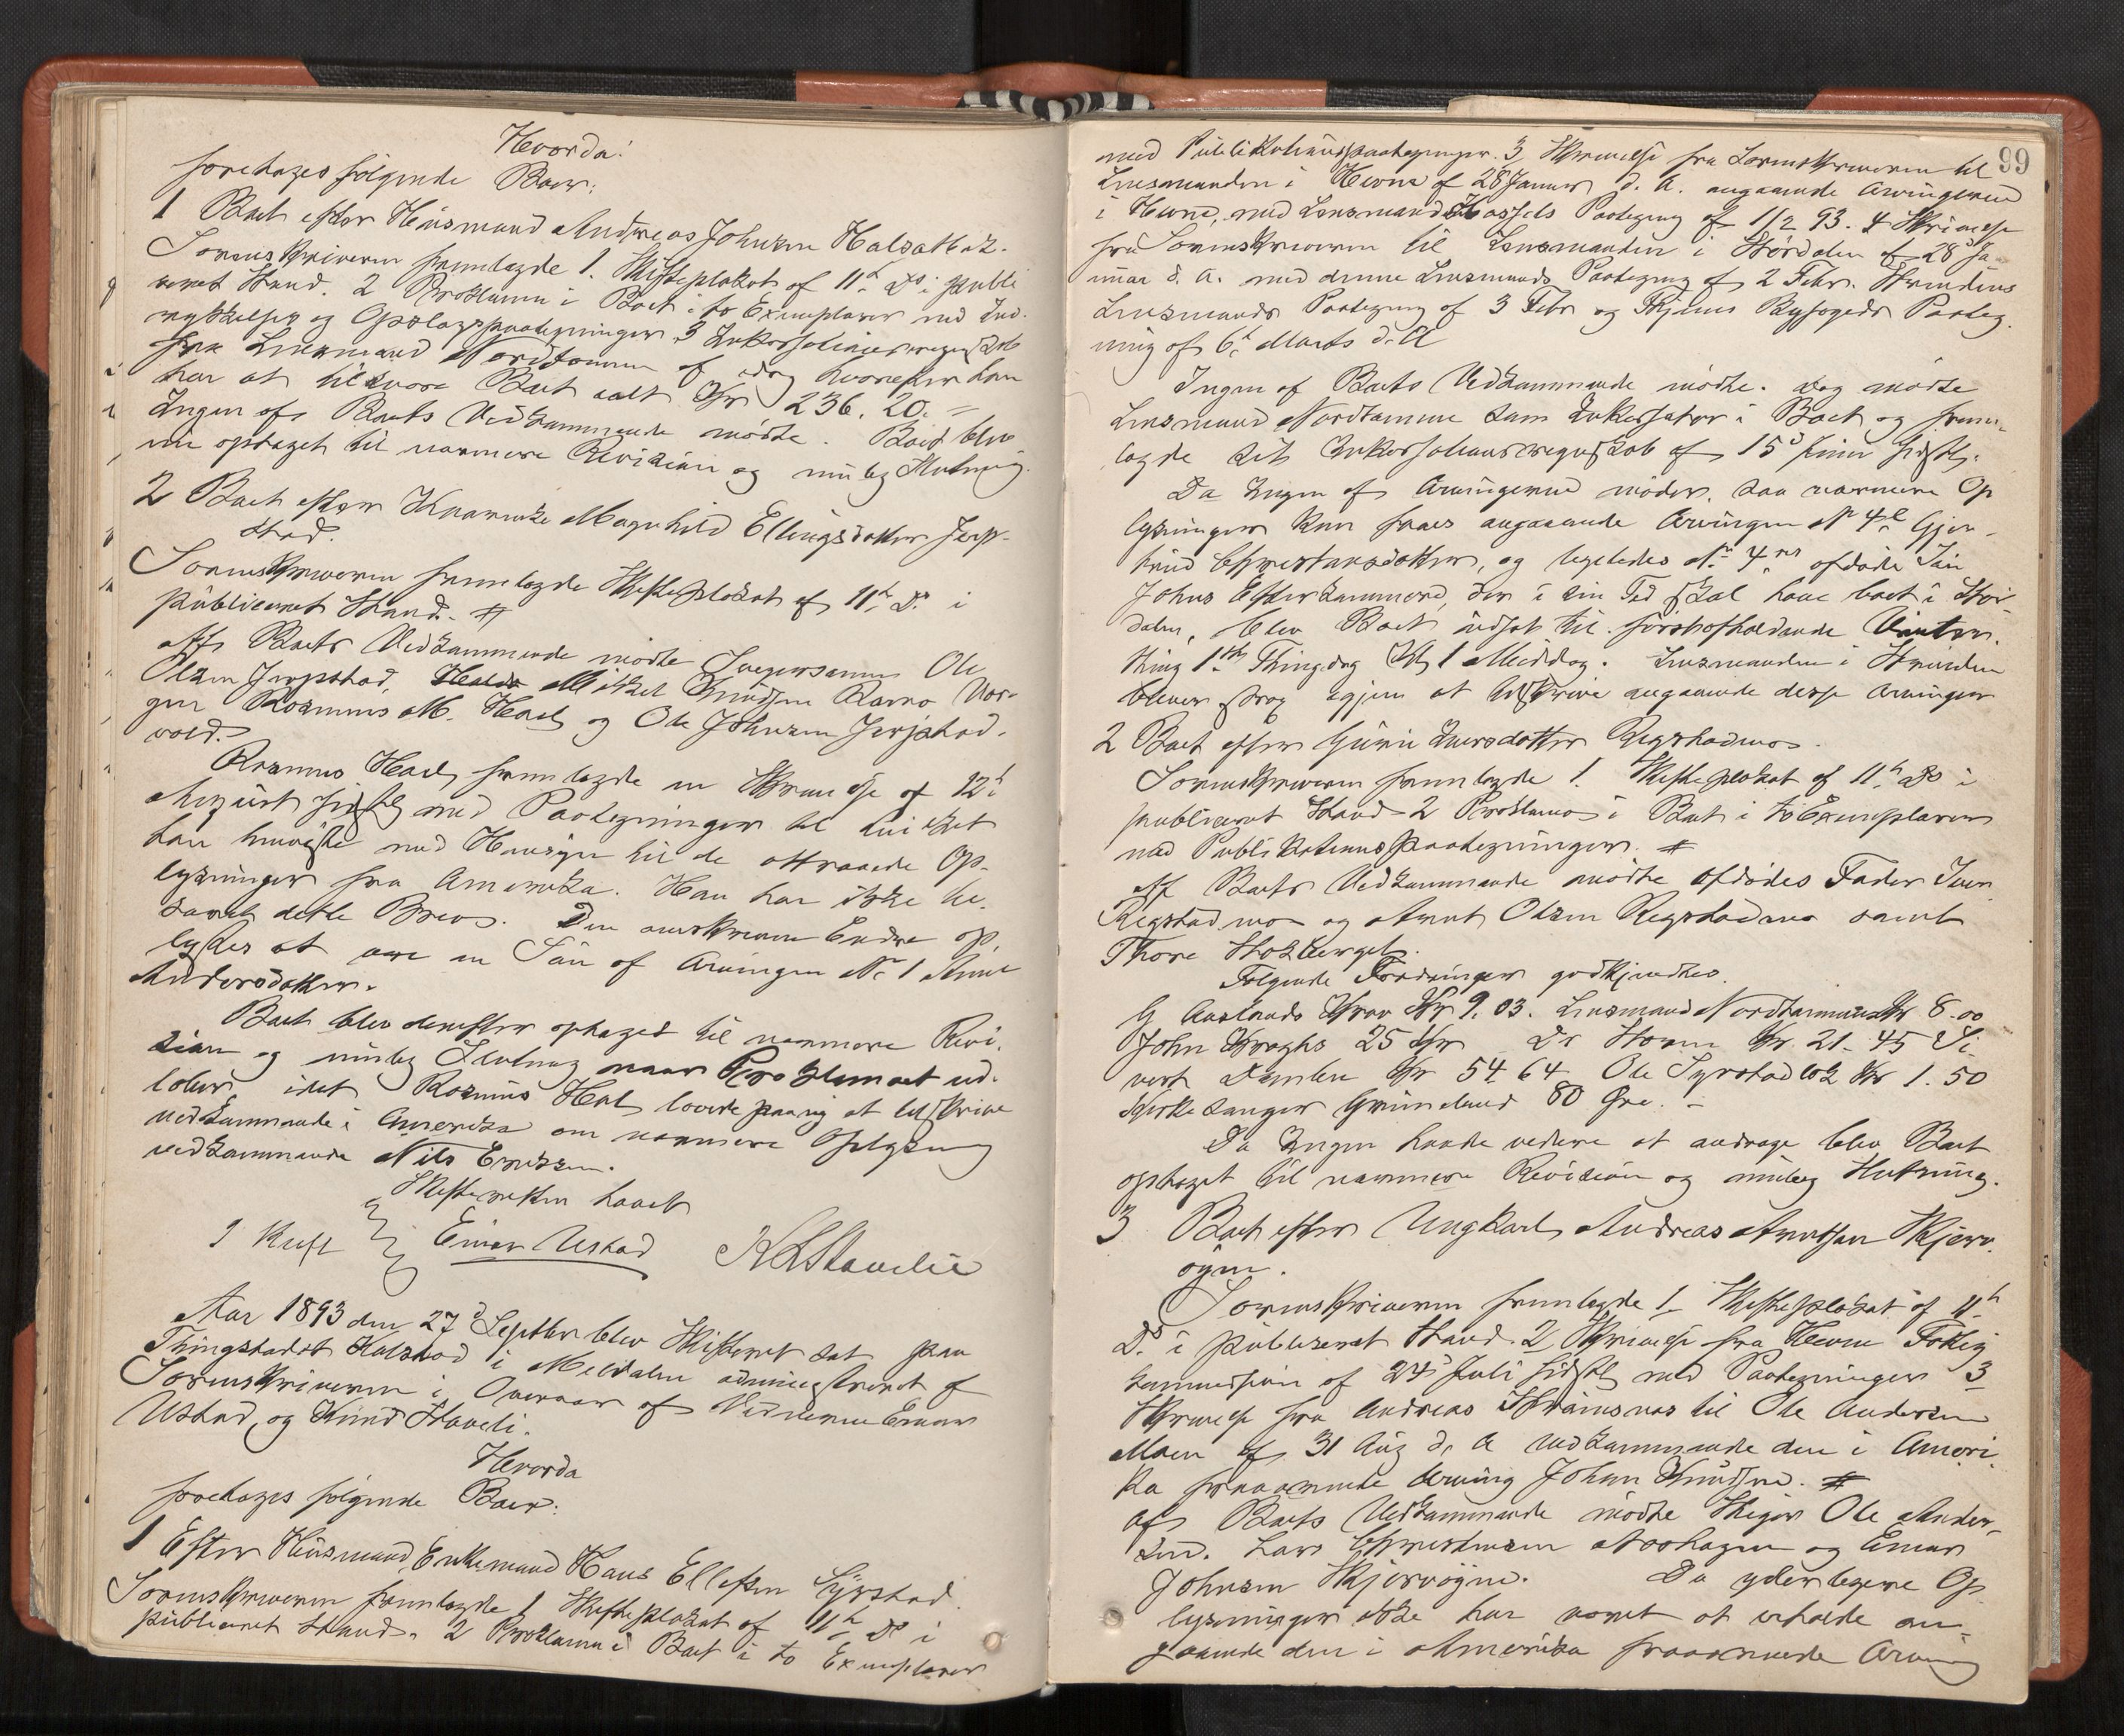 Hvorda:
foretoges følgende Boer:
1 Boet efter Huusmand Andreas Johnsen Halsetbak.
Sorenskriveren fremlagde 1. Skifteplakat af 11te Ds i publi
ceret Stand. 2 Proklama i Boet i to Exemplarer med Ind-
rykkelses og Opslagspaategninger 3 Inkassationsregnskab
fra Lensmand Nordtømme af idag hvorefter han
har at tilsvare Boet ialt Kr 236.20.-
Ingen af Boets Vedkommende mødte. Boet blev
nu optaget til nærmere Revision og mulig Slutning.
2 Boet efter Kaarenke Magnhild Ellingsdatter Jerp-
stad.
Sorenskriveren fremlagde Skifteplakat af 11te Ds i
publiceret Stand. #
Af Boets Vedkommende mødte Svigersønnen Ole
Olsen Jerpstad, Mikkel Knudsen Ramo Vær-
gen Rasmus M. Hoel og Ole Johnsen Jerpstad-
vold.
Rasmus Hoel fremlagde en Skrivelse af 12te
August sidstl med Paategninger til hvilket
han henviste med Hensyn til de attraaede Op-
lysninger fra Amerika. Han har ikke be-
svaret dette Brev. Den omskrevne Endre op-
lystes at være en Søn af Arvingen No 1 Anne
Andersdatter.
Boet blev derefter optaget til nærmere Revi-
sion og mulig Slutning naar Proklamaet ud-
løber, idet Rasmus Hoel lovede paany at tilskrive
vedkommende i Amerika om nærmere Oplysning
vedkommende Nils Ericksen.
Skifteretten hævet
I Rett Einar Ustad K L Staveli
Aar 1893 den 27d Septbr blev Skifteret sat paa
Thingstedet Kalstad i Meldalen administreret af
Sorenskriveren i Overvær af Vidnerne Einar
Ustad, og Knud Staveli.
Hvorda
foretoges følgende Boer:
1 Efter Huusmand Enkemand Hans Ellefsen Syrstad.
Sorenskriveren fremlagde 1 Skifteplakat af 11te Ds i
publiceret Stand. 2 Proklama i Boet i to Exemplarer
99
med Publikationspaategninger. 3 Skrivelse fra Sorenskriveren til
Lensmanden i Hevne af 28 Januar d. A. angaaende Arvingerne
i Hevne, med Lensmand Hassels Paategning af 1/2 93. 4 Skrivelse
fra Sorenskriveren til Lensmanden i Størdalen af 28de Ja-
nuar d. A. med denne Lensmands Paategning af 2 Febr. Strindens
Lensmands Paategning af 3 Febr og Byfogeds Paateg-
ning af 6te Marts d. A
Ingen af Boets Vedkommende mødte. Dog mødte
Lensmand Nordtømme som Inkassator i Boet og frem-
lagde sit Inkassationsregnskab af 15de Juni sidstl.
Da Ingen af Arvingerne møder, saa nærmere Op
lysninger kan faaes angaaende Arvingen No 4 Gjer-
trud Christensdatter, og ligeledes No 4 afdøde Søn
Johns Efterkommere, der i sin Tid skal have boet i Stør-
dalen, blev Boet udsat til førstafholdende Vinter-
thing 1ste Thingdag Kl 1 Middag. Lensmanden i Strinden
bliver strax igjen at tilskrive angaaende disse Arvinger
2 Boet efter Guru Iversdatter Regstadmo.
Sorenskriveren fremlagde 1. Skifteplakat af 11te Ds i
publiceret Stand - 2 Proklama i Boet i to Exemplarer
med Publikationspaategninger. #
Af Boets Vedkommende mødte Afdødes Fader Iver
Regstadmo og Arnt Olsen Regstadmo samt
Thore Stokberget.
Følgende Fordringer godkjendtes.
G Aunlands Krav Kr 9.03. Lensmand Nordtømme Kr 8.00
John Kroghs 25 Kr Dr Horn Kr. 21-45 Si-
vert Kr 54.64 Ole Syrstad Kr 1.50
Kirkesanger Grimelund 80 Øre. -
Da Ingen havde videre at andrage blev Boet
optaget til nærmere Revision og mulig Slutning.
3 Boet efter Ungkarl Andreas Arntsen Skjerv-
øyen.
Sorenskriveren fremlagde 1. Skifteplakat af 11te
Ds i publiceret Stand. 2 Skrivelse fra Hevne Fattig
kommission af 24de Juli sidstl med Paategninger 3
Skrivelse fra Andreas til Ole Andersen
Moen af 31 Aug d. A vedkommende den i Ameri-
ka fraværende Arving Johan Knudsen. #
Af Boets Vedkommende mødte Ole Ander-
sen. Lars Christensen og Einar
Johnsen Skjervøyen. Da yderligere Op
lysninger ikke har været at erholde an-
gaaende den i Amerika fraværende Arving